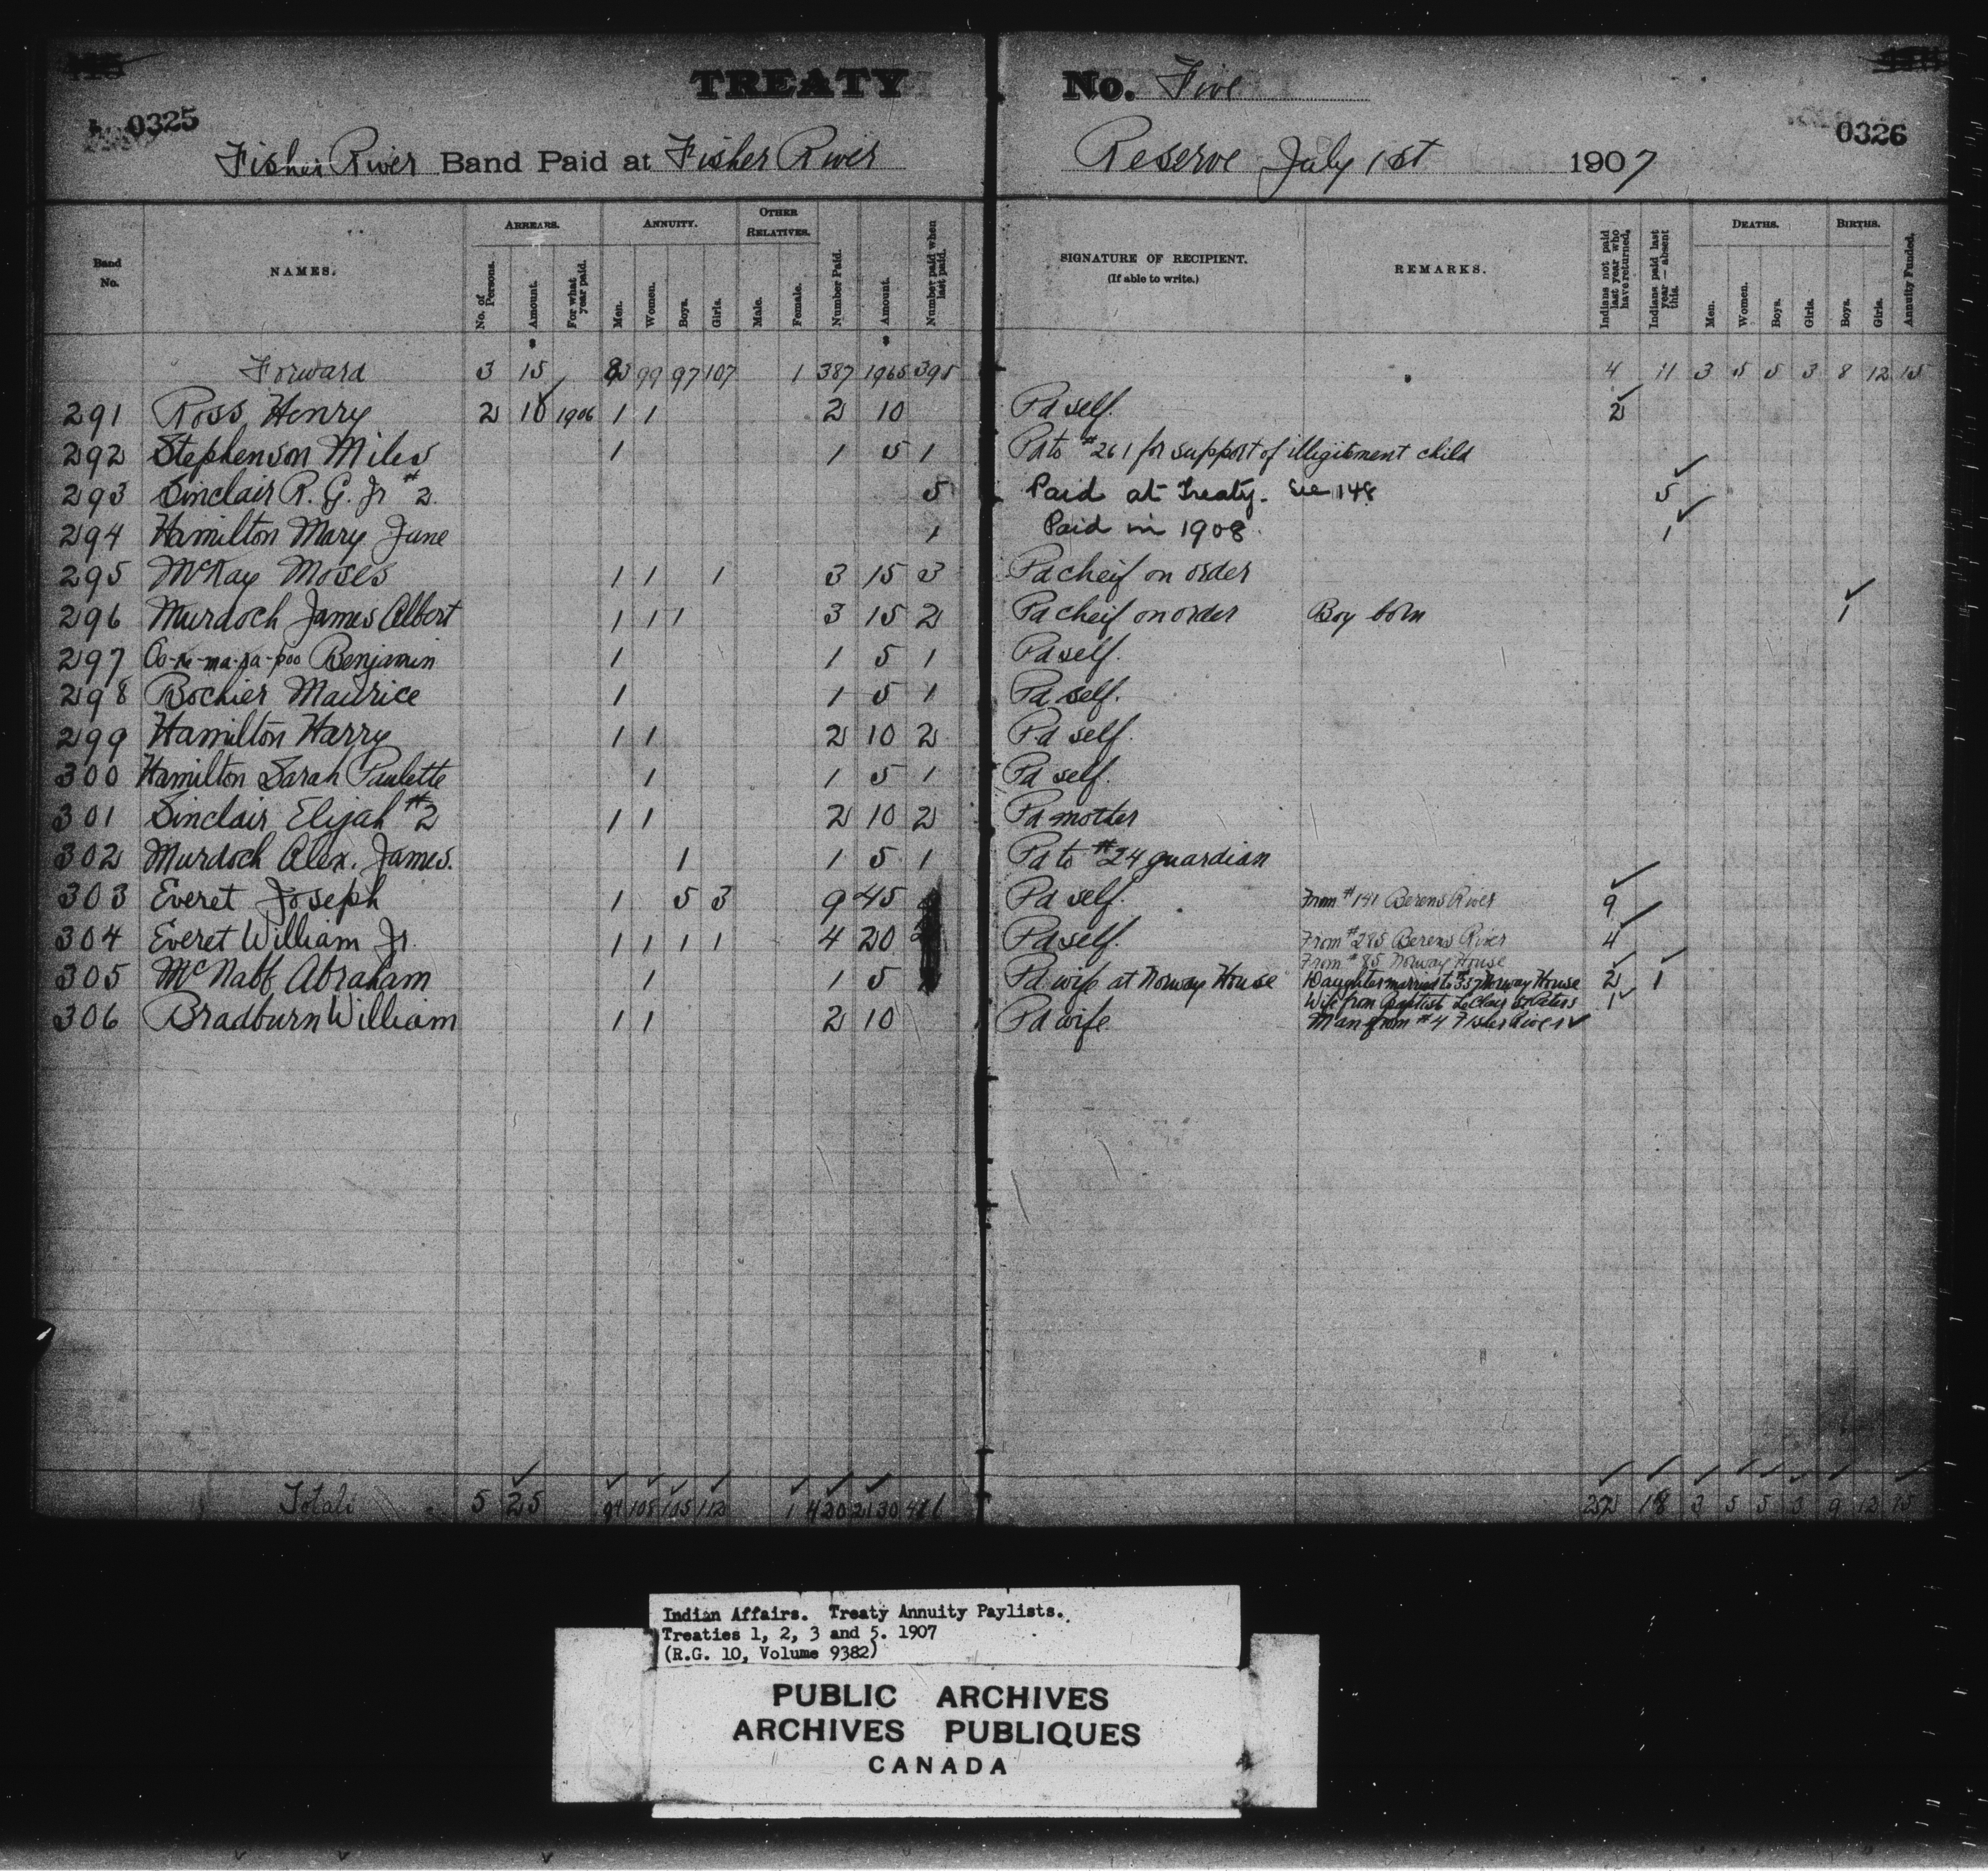 TREATY No. Five
0325
0326
Fisher River Band Paid at Fisher River Reserve July 1st 1907
Band No. NAMES. ARREARS. No. of Persons. Amount. For what year paid. ANNUITY. Men. Women. Boys. Girls. OTHER RELATIVES. Male. Female. Number Paid. Amount. Number paid when last paid. SIGNATURE OF RECIPIENT. (If able to write.) REMARKS. Indians not paid last year who have returned. Indians paid last year — absent this. DEATHS. Men. Women. Boys. Girls. BIRTHS. Boys. Girls. Annuity Funded.
$ $
Forward 3 15 83 99 97 107 1 387 1965 395 4 11 3 5 5 3 8 12 15
291 Ross Henry 2 10 1906 1 1 2 10 Pd self. 2
292 Stephenson Miles 1 1 5 1 Pd to #261 for support of illigitment child
293 Sinclair R. G. Jr #2 5 Paid at Treaty. See 148 5
294 Hamilton Mary Jane 1 Paid in 1908. 1
295 McKay Moses 1 1 1 3 15 3 Pd cheif on order
296 Murdoch James Albert 1 1 1 3 15 2 Pd cheif on order Boy born 1
297 Benjamin 1 1 5 1 Pd self.
298 Bochier Maurice 1 1 5 1 Pd self.
299 Hamilton Harry 1 1 2 10 2 Pd self.
300 Hamilton Sarah Paulette 1 1 5 1 Pd self.
301 Sinclair Elijah #2 1 1 2 10 2 Pd mother
302 Murdoch Alex. James. 1 1 5 1 Pd to #24 guardian
303 Everet Joseph 1 5 3 9 45 Pd self. From #141 Berens River 9
304 Everet William Jr. 1 1 1 1 4 20 Pd self. From #285 Berens River 4
From #85 Norway House
305 McNabb Abraham 1 1 5 Pd wife at Norway House Daughter married to 357 Norway House 2 1
Wife from Baptist LeClair St Peters 1
306 Bradburn William 1 1 2 10 Pd wife Man from #4 Fisher River
Totals 5 25 94 108 105 112 1 420 2130 416 22 18 3 5 5 3 9 12 15
Indian Affairs. Treaty Annuity Paylists.
Treaties 1, 2, 3 and 5. 1907
(R.G. 10, Volume 9382)
PUBLIC ARCHIVES
ARCHIVES PUBLIQUES
CANADA